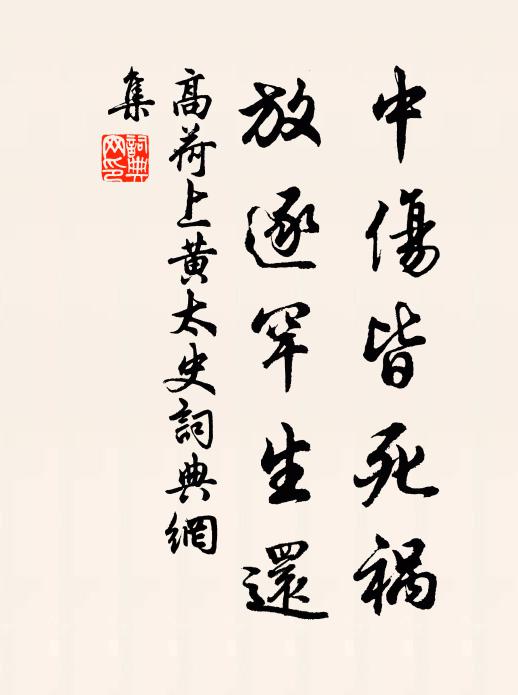 中傷皆死禍
放逐罕生還
高荷上黃太史詞典網
集
詞典
網印